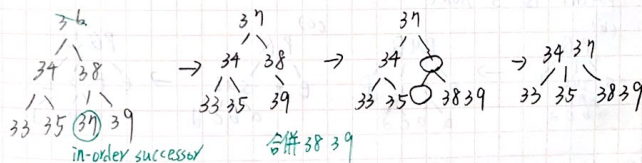 36
34 38
33 35 37 39
in-order successor
→
37
34 38
33 35 39
合併 38 39
→
37
34
33 35 38 39
→
34 37
33 35 38 39